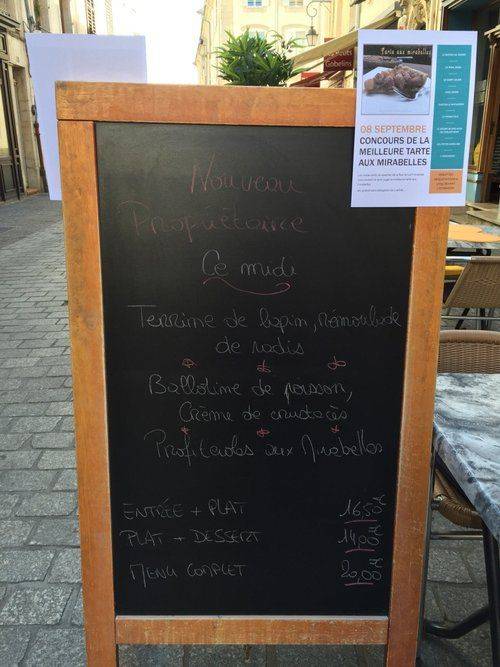 Gobelins
Tarte aux mirabelles
08 SEPTEMBRE
CONCOURS DE LA
MEILLEURE TARTE
AUX MIRABELLES
Nouveau
Propriétaire
Ce midi
Terrine de lapin, rémoulade
de radis
Ballotine de poisson,
Crème de crustacés
Profiteroles aux Mirabelles
ENTRÉE + PLAT 16,50€
PLAT + DESSERT 14,00€
MENU COMPLET 20,00€